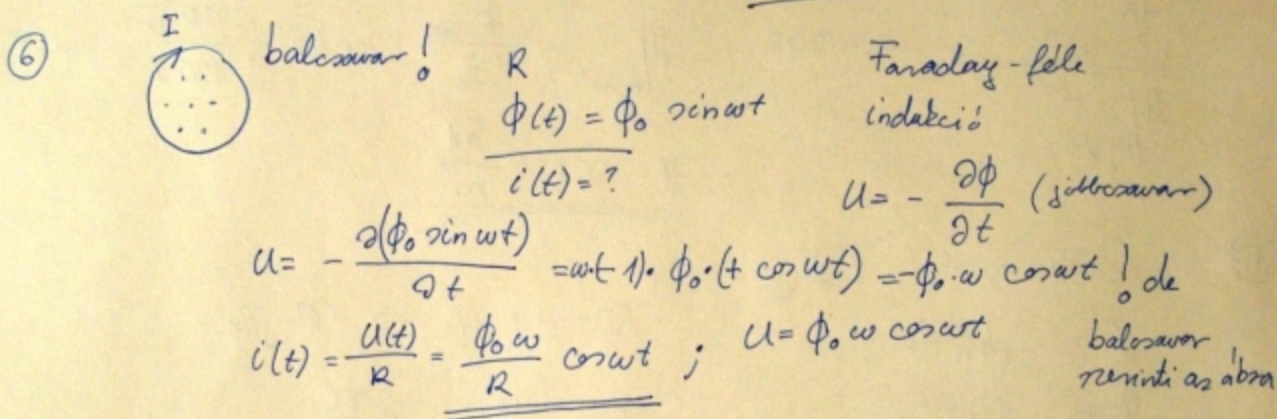 ⑥ I balcsavar! R Faraday-féle
Φ(t) = Φ₀ sin ωt indukció
i(t) = ?
U = - ∂Φ/∂t (jobbcsavar)
U = - ∂(Φ₀ sin ωt)/∂t = ω·(-1)· Φ₀·(+ cos ωt) = -Φ₀·ω cos ωt ! de
i(t) = U(t)/R = Φ₀ω/R cos ωt ; U = Φ₀ ω cos ωt balcsavar
szerinti az ábra